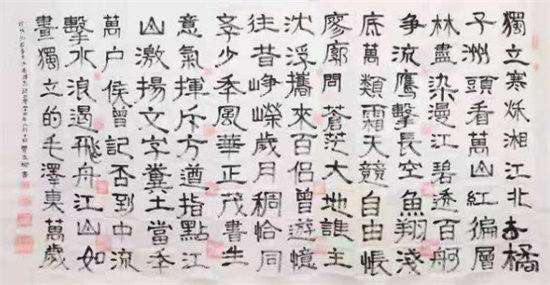 獨立寒秌湘江北去橘
子洲頭看萬山紅徧層
林盡染漫江碧透百舸
争流鷹擊長空魚翔淺
底萬類霜天競自由悵
廖廓問蒼茫大地誰主
沈浮攜來百侣曾遊憶
往昔崢嶸歲月稠恰同
學少年風華正茂書生
意氣揮斥方遒指點江
山激揚文字糞土當年
萬户侯曾記否到中流
擊水浪遏飛舟江山如
畫獨立的毛澤東萬歲